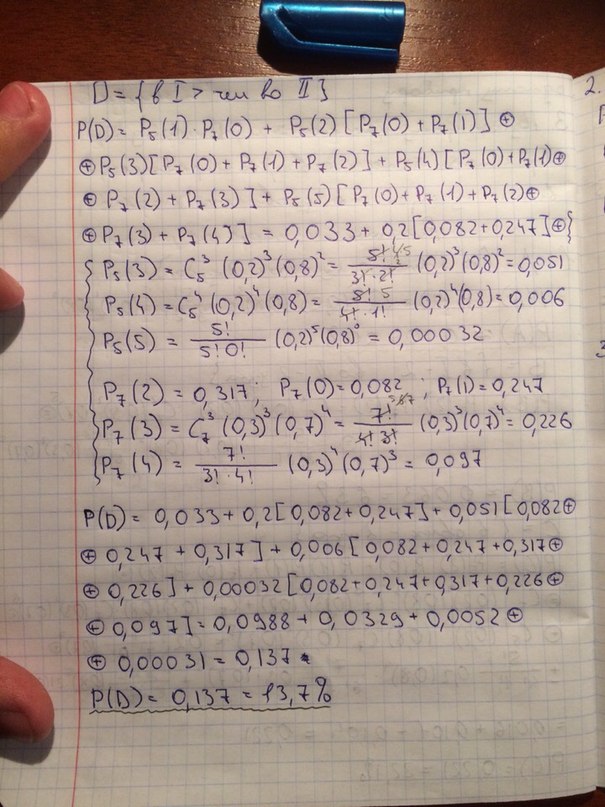 D = {в I > чем во II}
P(D) = P₅(1)·P₇(0) + P₅(2)[P₇(0) + P₇(1)] ⊕
⊕ P₅(3)[P₇(0) + P₇(1) + P₇(2)] + P₅(4)[P₇(0) + P₇(1) ⊕
⊕ P₇(2) + P₇(3)] + P₅(5)[P₇(0) + P₇(1) + P₇(2) ⊕
⊕ P₇(3) + P₇(4)] = 0,033 + 0,2[0,082 + 0,247] ⊕ }
{ P₅(3) = C₅³ (0,2)³ (0,8)² = 5! / 3!·2! (0,2)³ (0,8)² = 0,051
P₅(4) = C₅⁴ (0,2)⁴ (0,8) = 5! / 4!·1! (0,2)⁴ (0,8) = 0,006
P₅(5) = 5! / 5! 0! (0,2)⁵ (0,8)⁰ = 0,00032
P₇(2) = 0,317; P₇(0) = 0,082; P₇(1) = 0,247
P₇(3) = C₇³ (0,3)³ (0,7)⁴ = 7! / 4! 3! (0,3)³ (0,7)⁴ = 0,226
P₇(4) = 7! / 3!·4! (0,3)⁴ (0,7)³ = 0,097
P(D) = 0,033 + 0,2[0,082 + 0,247] + 0,051[0,082 ⊕
⊕ 0,247 + 0,317] + 0,006[0,082 + 0,247 + 0,317 ⊕
⊕ 0,226] + 0,00032[0,082 + 0,247 + 0,317 + 0,226 ⊕
⊕ 0,097] = 0,0988 + 0,0329 + 0,0052 ⊕
⊕ 0,00031 = 0,137
P(D) = 0,137 = 13,7%
2.